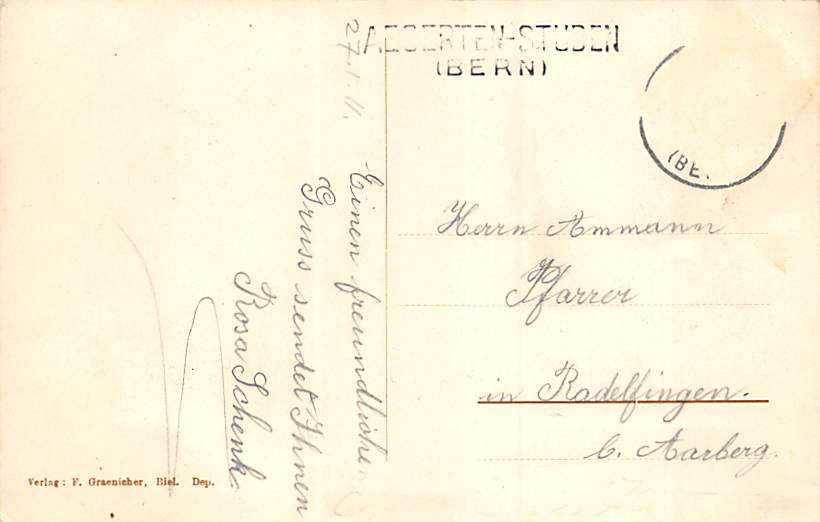 AEGERTEN-STUDEN
(BERN)
(BE.
27.1.11.
Einen freundlichen
Gruss sendet Ihnen
Rosa Schenk.
Herrn Ammann
Pfarrer
in Radelfingen.
b. Aarberg.
Verlag: F. Graenicher, Biel. Dep.